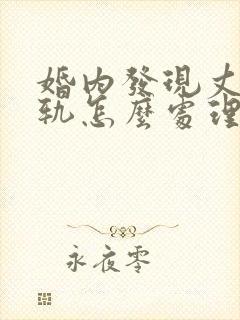 婚內發現丈
軌怎麼處理
永夜零